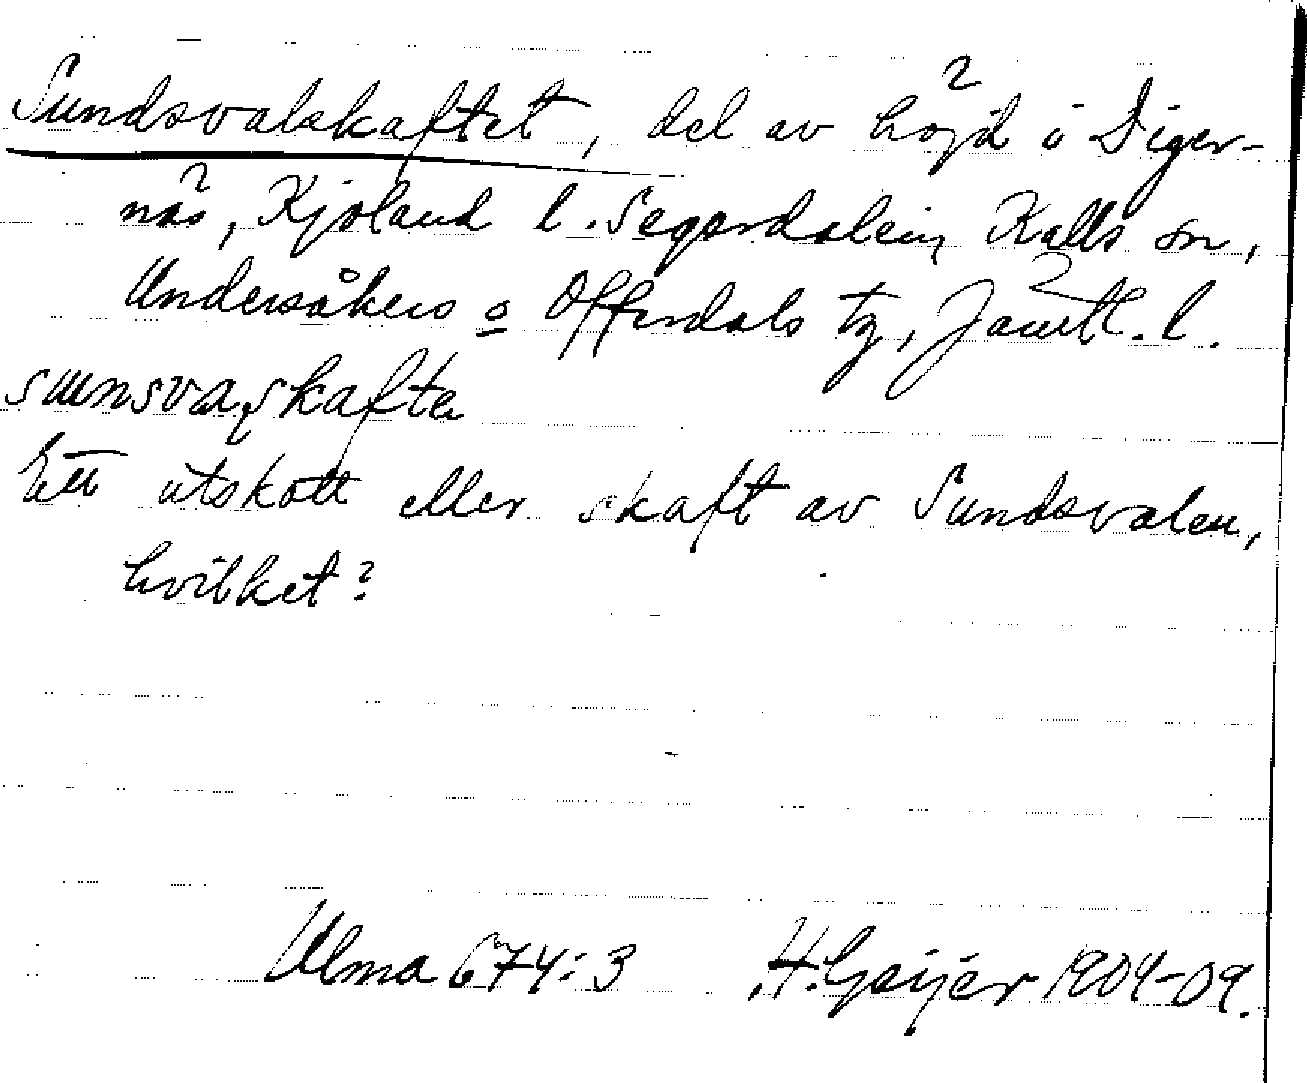 Sundsvalskaftet, del av höjd i Diger-
näs, Kjoland l. Segerdalen, Kalls sn,
Undersåkers o Offerdals tg, Jämtl. l.
sunsvaɽskafte
Ett utskott eller skaft av Sundsvalen,
hvilket?
Ulma 674:3 H. Geijer 1904-09.